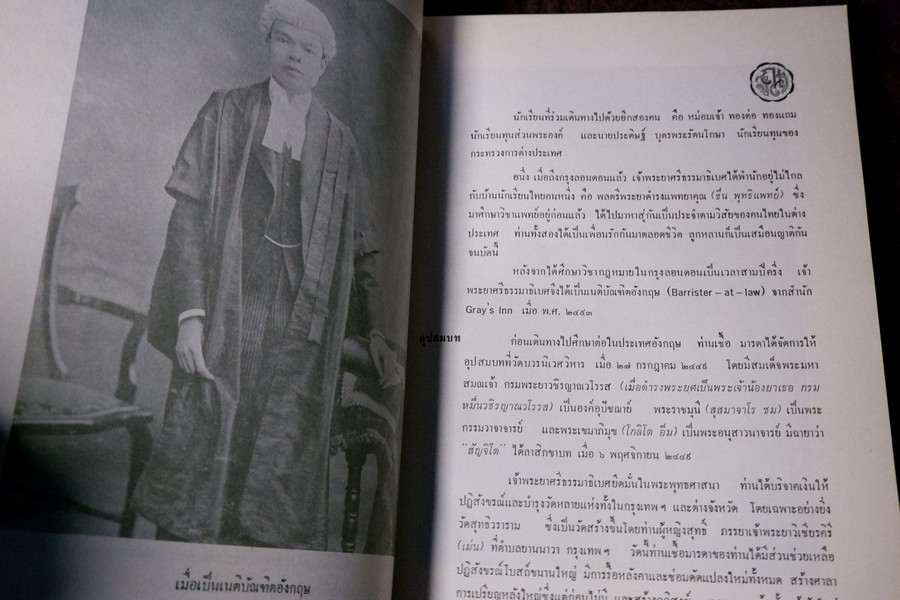 เมื่อเป็นเนติบัณฑิตอังกฤษ
นักเรียนที่ร่วมเดินทางไปด้วยอีกสองคน คือ หม่อมเจ้า ทองต่อ ทองแถม
นักเรียนทุนส่วนพระองค์ และนายประดิษฐ์ บุตรพระรัตนโกษา นักเรียนทุนของ
กระทรวงการต่างประเทศ
อนึ่ง เมื่อถึงกรุงลอนดอนแล้ว เจ้าพระยาศรีธรรมาธิเบศได้พำนักอยู่ไม่ไกล
กับบ้านนักเรียนไทยคนหนึ่ง คือ พลตรีพระยาดำรงแพทยาคุณ (ชื่น พุทธิแพทย์) ซึ่ง
มาศึกษาวิชาแพทย์อยู่ก่อนแล้ว ได้ไปมาหาสู่กันเป็นประจำตามวิสัยของคนไทยในต่าง
ประเทศ ท่านทั้งสองได้เป็นเพื่อนรักกันมาตลอดชีวิต ลูกหลานก็เป็นเสมือนญาติกัน
จนบัดนี้
หลังจากได้ศึกษาวิชากฎหมายในกรุงลอนดอนเป็นเวลาสามปีครึ่ง เจ้า
พระยาศรีธรรมาธิเบศจึงได้เป็นเนติบัณฑิตอังกฤษ (Barrister – at – law) จากสำนัก
Gray's Inn เมื่อ พ.ศ. ๒๔๕๓
อุปสมบท
ก่อนเดินทางไปศึกษาต่อในประเทศอังกฤษ ท่านเชื้อ มารดาได้จัดการให้
อุปสมบทที่วัดบวรนิเวศวิหาร เมื่อ ๒๗ กรกฎาคม ๒๔๔๙ โดยมีสมเด็จพระมหา
สมณเจ้า กรมพระยาวชิรญาณวโรรส (เมื่อดำรงพระยศเป็นพระเจ้าน้องยาเธอ กรม
หมื่นวชิรญาณวโรรส) เป็นองค์อุปัชฌาย์ พระราชมุนี (สุสมาจาโร ชม) เป็นพระ
กรรมวาจาจารย์ และพระเขมาภิมุข (โกลิโต อิ่ม) เป็นพระอนุสาวนาจารย์ มีฉายาว่า
"สัญจิโต" ได้ลาสิกขาบท เมื่อ ๖ พฤศจิกายน ๒๔๔๙
เจ้าพระยาศรีธรรมาธิเบศยึดมั่นในพระพุทธศาสนา ท่านได้บริจาคเงินให้
ปฏิสังขรณ์และบำรุงวัดหลายแห่งทั้งในกรุงเทพฯ และต่างจังหวัด โดยเฉพาะอย่างยิ่ง
วัดสุทธิวราราม ซึ่งเป็นวัดสร้างขึ้นโดยท่านผู้หญิงสุทธิ์ ภรรยาเจ้าพระยาวิเชียรคีรี
(เม่น) ที่ตำบลยานนาวา กรุงเทพฯ วัดนี้ท่านเชื้อมารดาของท่านได้มีส่วนช่วยเหลือ
ปฏิสังขรณ์โบสถ์ขนานใหญ่ มีการรื้อหลังคาและซ่อมดัดแปลงใหม่ทั้งหมด สร้างศาลา
การเปรียญหลังใหญ่ซึ่งแต่ก่อนไม่มี